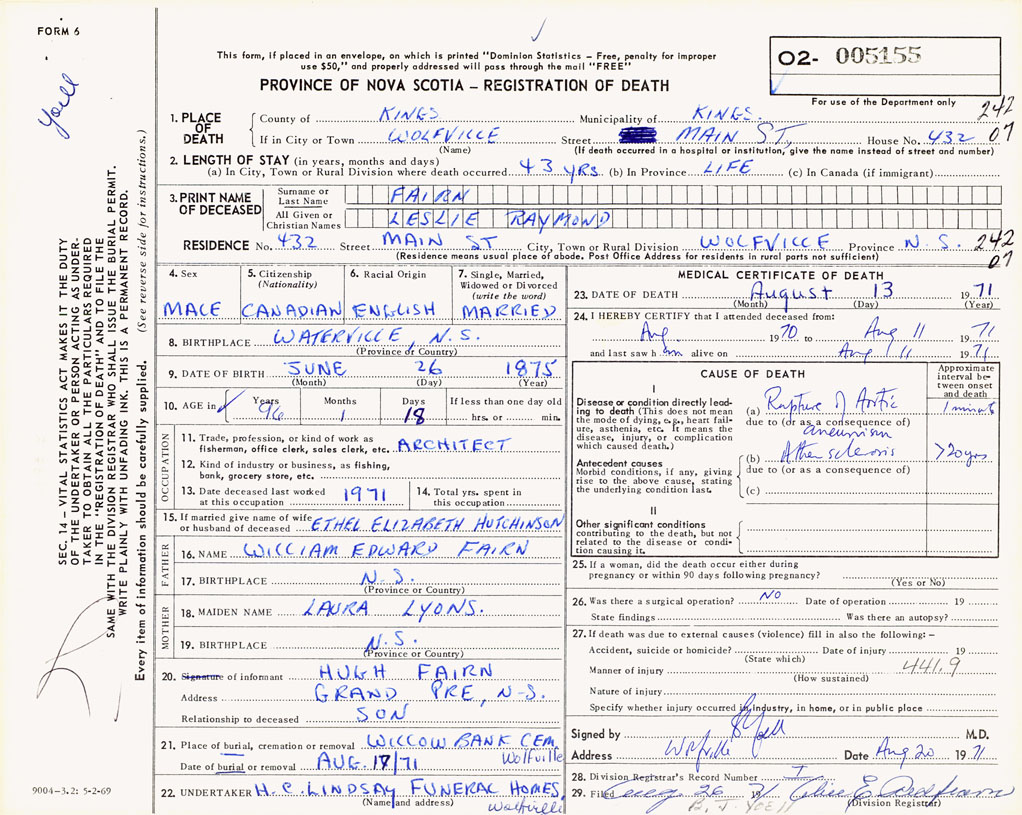 FORM 6
Yoell
This form, if placed in an envelope, on which is printed "Dominion Statistics – Free, penalty for improper
use $50," and properly addressed will pass through the mail "FREE"
PROVINCE OF NOVA SCOTIA – REGISTRATION OF DEATH
02- 005155
For use of the Department only
242
07
1. PLACE OF DEATH
County of KINGS Municipality of KINGS.
If in City or Town WOLFVILLE Street MAIN ST, House No. 432
(Name) (If death occurred in a hospital or institution, give the name instead of street and number)
2. LENGTH OF STAY (in years, months and days)
(a) In City, Town or Rural Division where death occurred 43 YRS. (b) In Province LIFE (c) In Canada (if immigrant)
3. PRINT NAME OF DECEASED
Surname or Last Name FAIRN
All Given or Christian Names LESLIE RAYMOND
RESIDENCE No. 432 Street MAIN ST City, Town or Rural Division WOLFVILLE Province N.S. 242
(Residence means usual place of abode. Post Office Address for residents in rural parts not sufficient) 07
4. Sex
MALE
5. Citizenship
(Nationality)
CANADIAN
6. Racial Origin
ENGLISH
7. Single, Married,
Widowed or Divorced
(write the word)
MARRIED
8. BIRTHPLACE WATERVILLE, N.S.
(Province or Country)
9. DATE OF BIRTH JUNE 26 1875
(Month) (Day) (Year)
10. AGE in Years Months Days If less than one day old
96 1 18 hrs. or min.
OCCUPATION
11. Trade, profession, or kind of work as
fisherman, office clerk, sales clerk, etc. ARCHITECT
12. Kind of industry or business, as fishing,
bank, grocery store, etc.
13. Date deceased last worked
at this occupation 1971
14. Total yrs. spent in
this occupation
15. If married give name of wife
or husband of deceased ETHEL ELIZABETH HUTCHINSON
FATHER
16. NAME WILLIAM EDWARD FAIRN
17. BIRTHPLACE N.S.
(Province or Country)
MOTHER
18. MAIDEN NAME LAURA LYONS.
19. BIRTHPLACE N.S.
(Province or Country)
20. Signature of informant HUGH FAIRN
Address GRAND PRE, N-S.
Relationship to deceased SON
21. Place of burial, cremation or removal WILLOW BANK CEM.
Wolfville
Date of burial or removal AUG. 17/71
22. UNDERTAKER H.C. LINDSAY FUNERAL HOMES,
(Name and address) Wolfville
MEDICAL CERTIFICATE OF DEATH
23. DATE OF DEATH August 13 1971
(Month) (Day) (Year)
24. I HEREBY CERTIFY that I attended deceased from:
Aug. 1970 to Aug 11 1971
and last saw h im alive on Aug 11 1971
CAUSE OF DEATH
Approximate interval between onset and death
I
Disease or condition directly leading to death (This does not mean the mode of dying, e.g., heart failure, asthenia, etc. It means the disease, injury, or complication which caused death.)
(a) Rupture of Aortic 1 minute
due to (or as a consequence of)
aneurism
Antecedent causes
Morbid conditions, if any, giving rise to the above cause, stating the underlying condition last.
(b) Atherosclerosis >20yrs
due to (or as a consequence of)
(c)
II
Other significant conditions
contributing to the death, but not related to the disease or condition causing it.
25. If a woman, did the death occur either during
pregnancy or within 90 days following pregnancy?
(Yes or No)
26. Was there a surgical operation? NO Date of operation 19
State findings Was there an autopsy?
27. If death was due to external causes (violence) fill in also the following: –
Accident, suicide or homicide? Date of injury 19
(State which)
Manner of injury 441.9
(How sustained)
Nature of injury
Specify whether injury occurred in industry, in home, or in public place
Signed by Yoell M.D.
Address Wolfville Date Aug 20 1971
28. Division Registrar's Record Number
29. Filed Aug. 26 1971
(Division Registrar)
B. J. YOEll
SEC. 14 – VITAL STATISTICS ACT MAKES IT THE DUTY
OF THE UNDERTAKER OR PERSON ACTING AS UNDERTAKER TO OBTAIN ALL THE PARTICULARS REQUIRED
IN THE "REGISTRATION OF DEATH" AND TO FILE THE
SAME WITH THE DIVISION REGISTRAR WHO SHALL ISSUE THE BURIAL PERMIT.
WRITE PLAINLY WITH UNFADING INK. THIS IS A PERMANENT RECORD.
Every item of information should be carefully supplied. (See reverse side for instructions.)
9004-3.2: 5-2-69